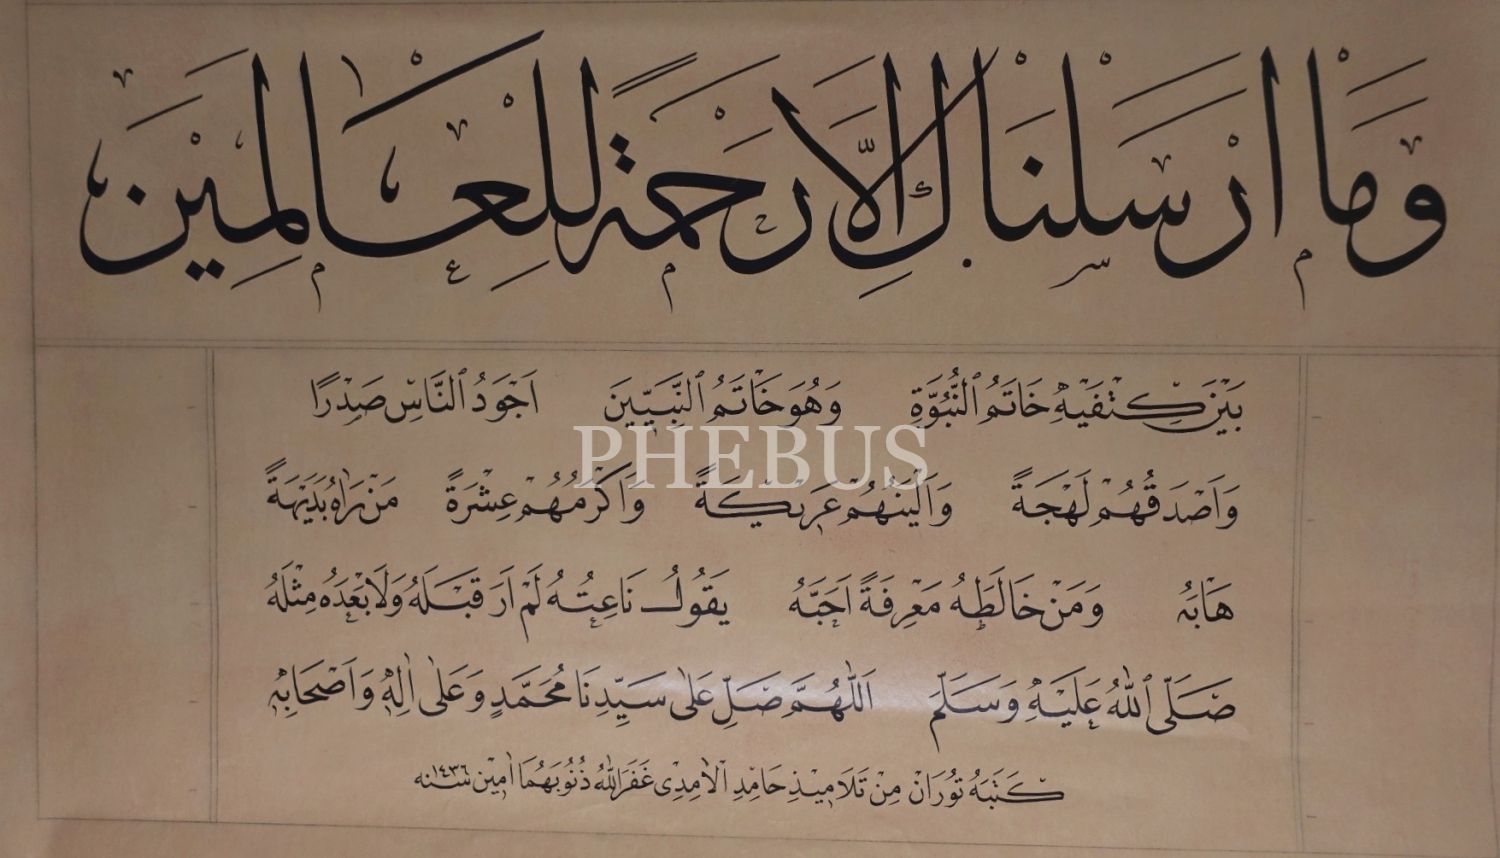 وَمَا اَرْسَلْنَاكَ اِلَّا رَحْمَةً لِلْعَالَمِينَ
بَيْنَ كَتِفَيْهِ خَاتَمُ النُّبُوَّةِ وَهُوَ خَاتَمُ النَّبِيِّينَ اَجْوَدُ النَّاسِ صَدْرًا
PHEBUS
وَاَصْدَقُهُمْ لَهْجَةً وَاَلْيَنُهُمْ عَرِيكَةً وَاَكْرَمُهُمْ عِشْرَةً مَنْ رَاٰهُ بَدِيهَةً
هَابَهُ وَمَنْ خَالَطَهُ مَعْرِفَةً اَحَبَّهُ يَقُولُ نَاعِتُهُ لَمْ اَرَ قَبْلَهُ وَلَا بَعْدَهُ مِثْلَهُ
صَلَّى اللّٰهُ عَلَيْهِ وَسَلَّمَ اَللّٰهُمَّ صَلِّ عَلٰى سَيِّدِنَا مُحَمَّدٍ وَعَلٰى اٰلِهِ وَاَصْحَابِهِ
كَتَبَهُ تُورَانْ مِنْ تَلَامِيذِ حَامِدِ الْاٰمِدِى غَفَرَ اللّٰهُ ذُنُوبَهُمَا اٰمِين سنه ١٤٣٦